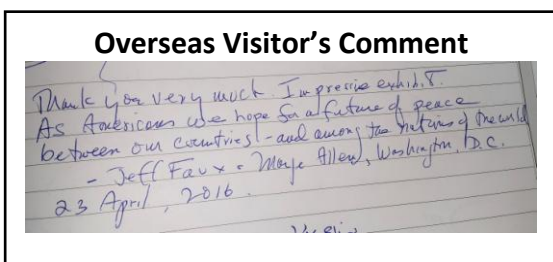 Overseas Visitor’s Comment
Thank you very much. Impressive exhibit.
As Americans we hope for a future of peace
between our countries - and among the nations of the world
- Jeff Faux - Marge Allen, Washington, D.C.
23 April, 2016